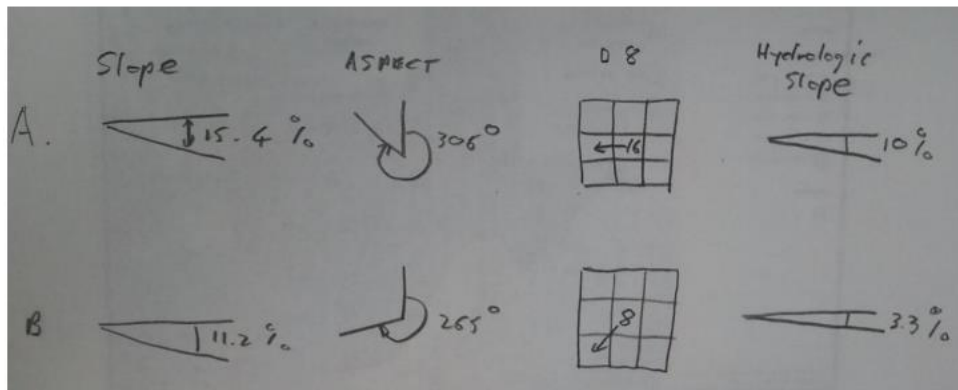 Slope ASPECT D 8 Hydrologic
Slope
A. 15.4 % 306° 16 10%
B 11.2 % 265° 8 3.3%